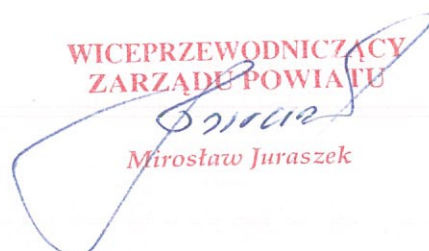 WICEPRZEWODNICZĄCY
ZARZĄDU POWIATU
Mirosław Juraszek